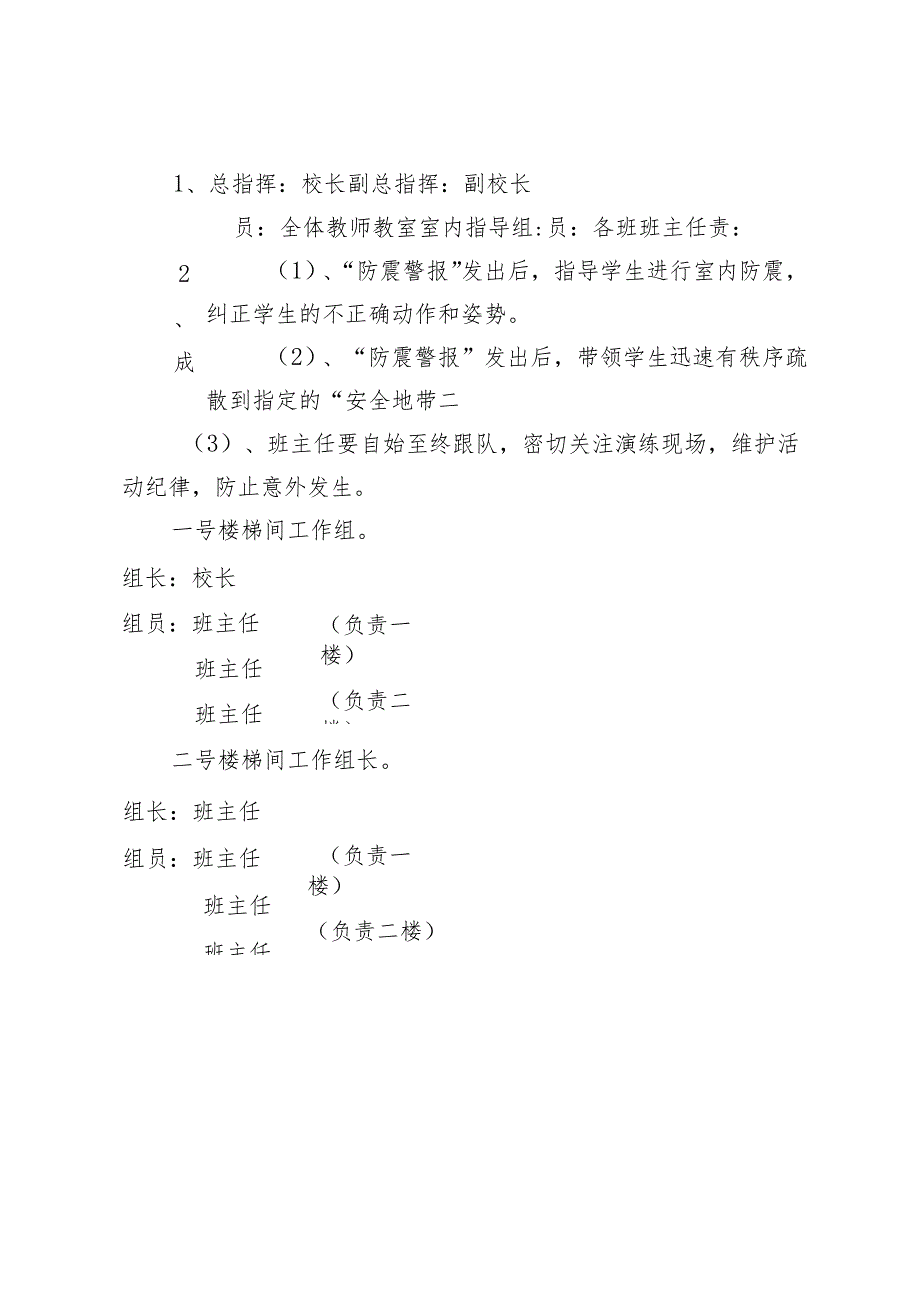 1、总指挥：校长副总指挥：副校长
员：全体教师教室室内指导组:员：各班班主任责：
2
（1）、“防震警报”发出后，指导学生进行室内防震，
、
纠正学生的不正确动作和姿势。
成
（2）、“防震警报”发出后，带领学生迅速有秩序疏
散到指定的“安全地带二
（3）、班主任要自始至终跟队，密切关注演练现场，维护活
动纪律，防止意外发生。
一号楼梯间工作组。
组长：校长
组员：班主任
（负责一
楼）
班主任
（负责二
班主任
二号楼梯间工作组长。
组长：班主任
组员：班主任
（负责一
楼）
班主任
（负责二楼）
班主任